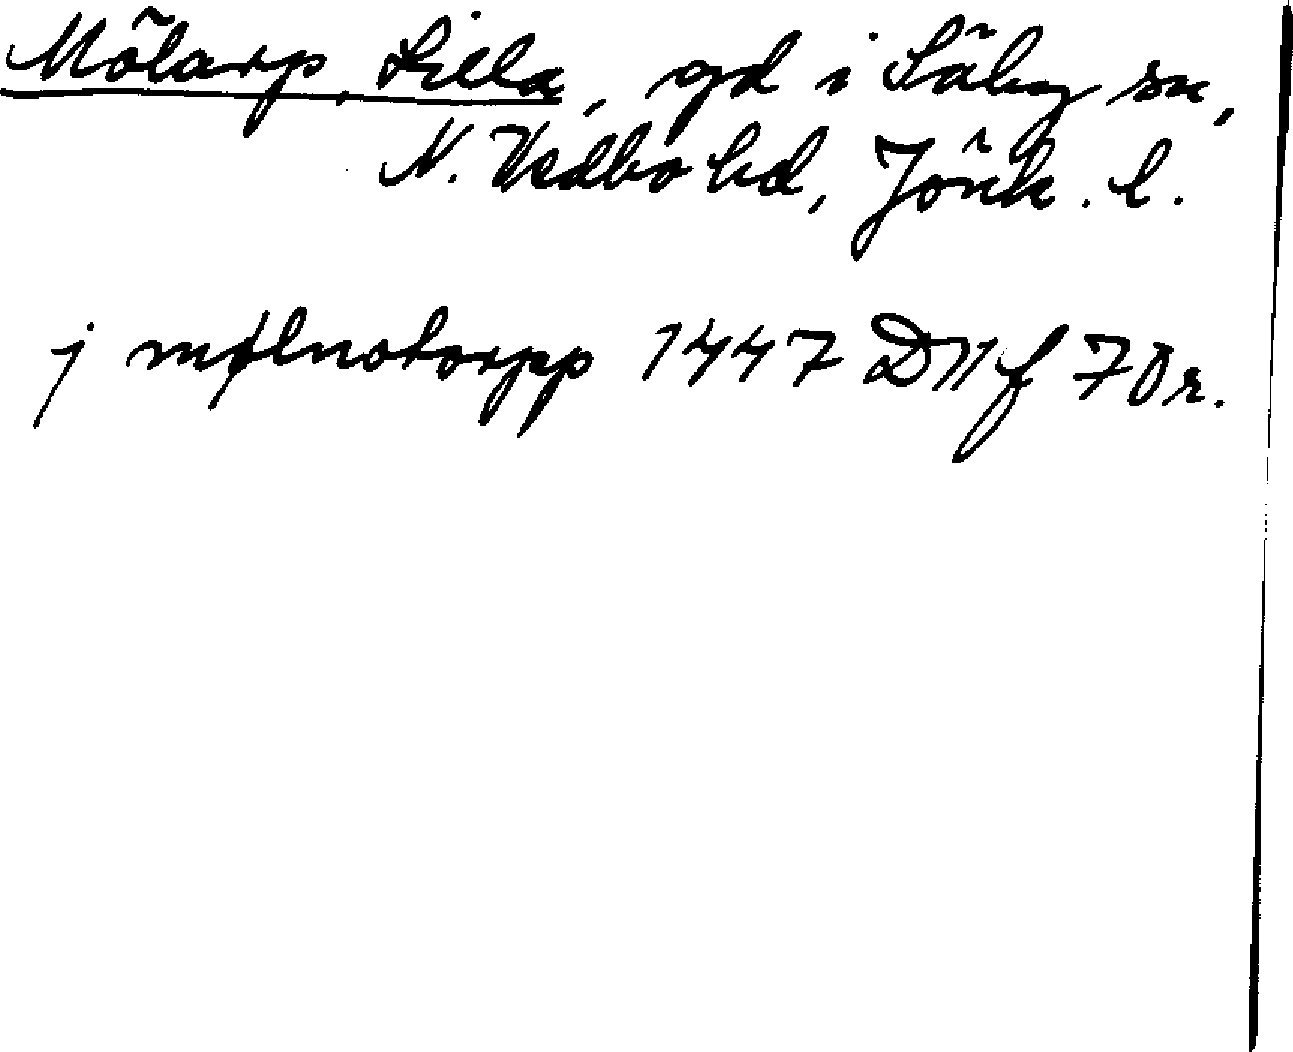 Mölarp, Lilla, gd i Säby sn,
N. Vedbo hd, Jönk. l.
j mølnotorpp 1447 D11 f 70 r.